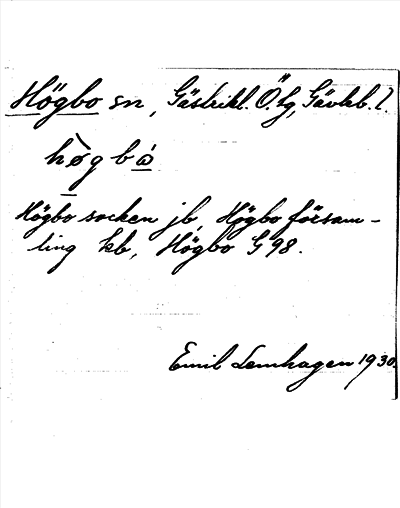 Högbo sn, Gästrikl. Ö. tg, Gävleb. l.
hø̀gbå̀
Högbo socken jb, Högbo försam-
ling kb, Högbo G98.
Emil Lemhagen 1930.